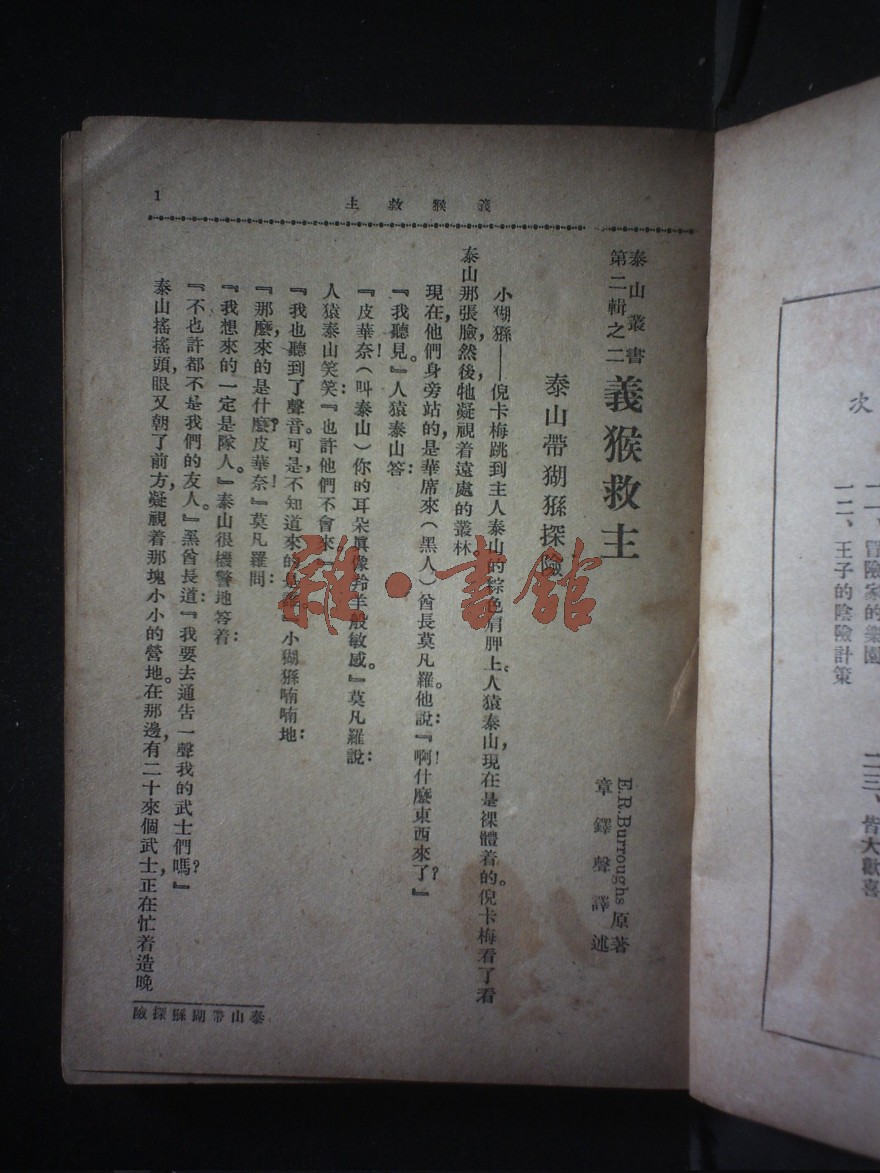 次
一二、王子的陰險計策
一三、皆大歡喜
義猴救主
1
泰山叢書
第二輯之二
義猴救主
E.R.Burroughs原著
章鐸聲譯述
泰山帶猢猻探險
小猢猻——倪卡梅跳到主人泰山的棕色肩胛上。人猿泰山,現在是裸體着的。倪卡梅看了看
泰山那張臉,然後,牠凝視着遠處的叢林。
現在他們身旁站的,是華席來(黑人)酋長莫凡羅。他說:『啊!什麼東西來了?』
『我聽見。』人猿泰山答:
『皮華奈!(叫泰山)你的耳朵眞像羚羊般敏感。』莫凡羅說:
人猿泰山笑笑:『也許他們不會來
『我也聽到了聲音。可是,不知道來的是誰』小猢猻喃喃地:
『那麼,來的是什麼?皮華奈!』莫凡羅問:
『我想,來的一定是隊人。』泰山很機警地答着:
『不,也許都不是我們的友人。』黑酋長道:『我要去通告一聲我的武士們嗎?』
泰山搖搖頭,眼又朝了前方,凝視着那塊小小的營地。在那邊,有二十來個武士,正在忙着造晚
泰山帶猢猻探險
雜·書館